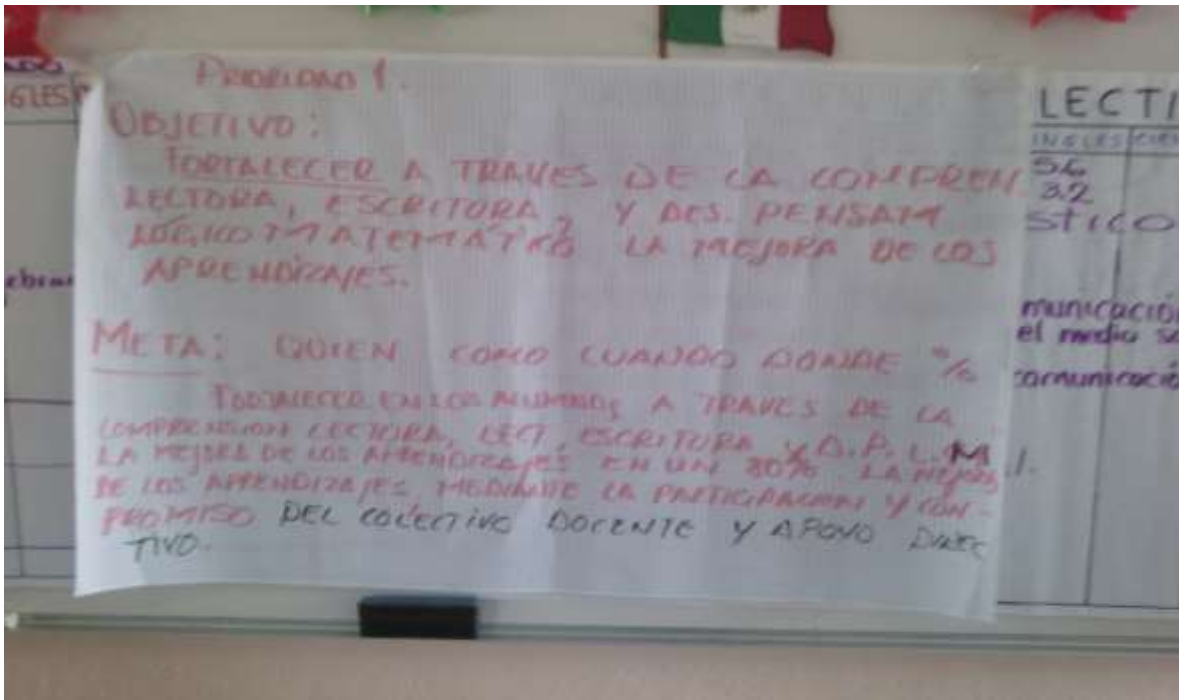 PRIORIDAD 1.
OBJETIVO:
FORTALECER A TRAVES DE LA COMPREN
LECTORA, ESCRITURA, Y DES. PENSAM
LÓGICO MATEMÁTICO LA MEJORA DE LOS
APRENDIZAJES.
META: QUIEN COMO CUANDO DONDE %
FORTALECER EN LOS ALUMNOS A TRAVES DE LA
COMPRENSION LECTORA, LECT, ESCRITURA Y D.P.L.M
LA MEJORA DE LOS APRENDIZAJES EN UN 80% LA MEJORA
DE LOS APRENDIZAJES, MEDIANTE LA PARTICIPACION Y COM-
PROMISO DEL COLECTIVO DOCENTE Y APOYO DIREC
TIVO.
GLES
LECTI
INGLES
5.6
3.2
STICO
municación
el medio so
comunicació